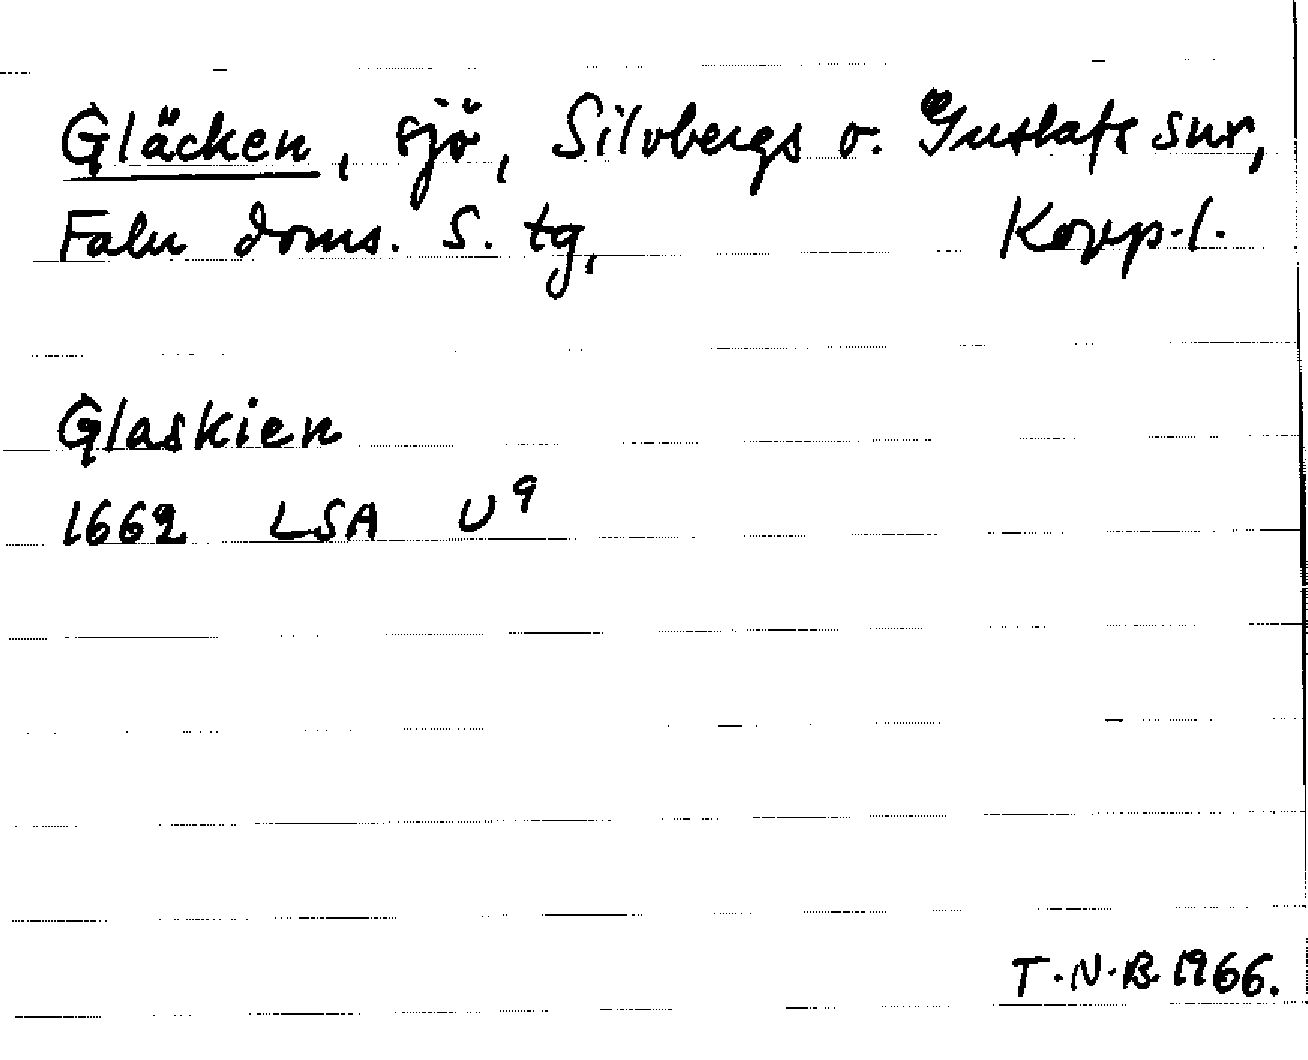 Gläcken, sjö, Silvbergs o. Gustafs snr,
Falu doms. S. tg, Kopp.l.
Glaskien
1662 LSA U9
T.N.B. 1966.